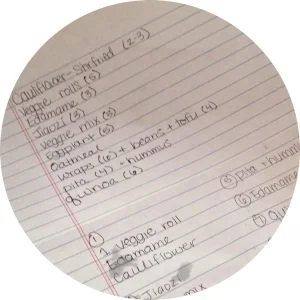 Cauliflower-Stirfried (2-3)
Veggie rolls (5)
Edamame (3)
Jiaozi (3)
Veggie mix (3)
Eggplant (5)
Oatmeal
Wraps (6) + beans + tofu (4)
Pita (4) + hummus
Quinoa (6)
①
1 Veggie roll
Edamame
Cauliflower
Jiaozi
mix
⑤ Pita + humm
⑥ Edamame
⑦ Qui